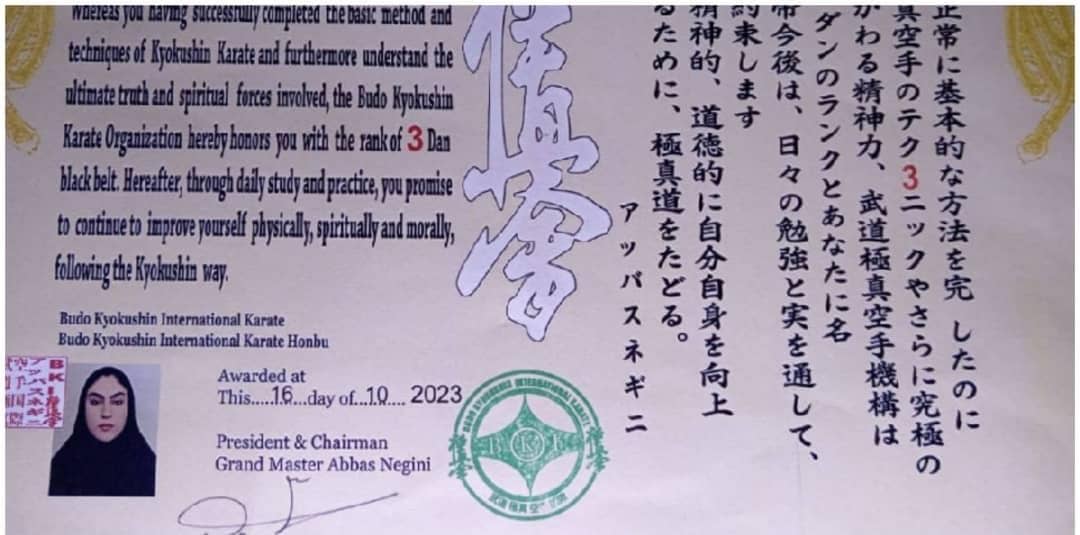 Whereas you having successfully completed the basic method and
techniques of Kyokushin Karate and furthermore understand the
ultimate truth and spiritual forces involved, the Budo Kyokushin
Karate Organization hereby honors you with the rank of 3 Dan
black belt. Hereafter, through daily study and practice, you promise
to continue to improve yourself physically, spiritually and morally,
following the Kyokushin way.
Budo Kyokushin International Karate
Budo Kyokushin International Karate Honbu
Awarded at
This.....16...day of...10.... 2023
President & Chairman
Grand Master Abbas Negini
真會
正常に基本的な方法を完 したのに
真空手のテク3ニックやさらに究極の
かわる精神力、武道極真空手機構は
ダンのランクとあなたに名
常今後は、日々の勉強と実を通して、
約束します
精神的、道徳的に自分自身を向上
るために、極真道をたどる。
アッバスネギニ
BUDO KYOKUSHIN INTERNATIONAL KARATE
BKI
BKI
アッバスネギニ